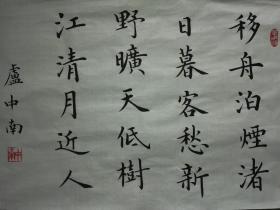 移舟泊煙渚
日暮客愁新
野曠天低樹
江清月近人
盧中南